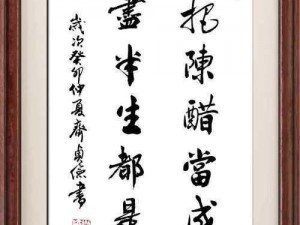 把陳醋當成
盡半生都是
歲次癸卯仲夏齊貞儉書